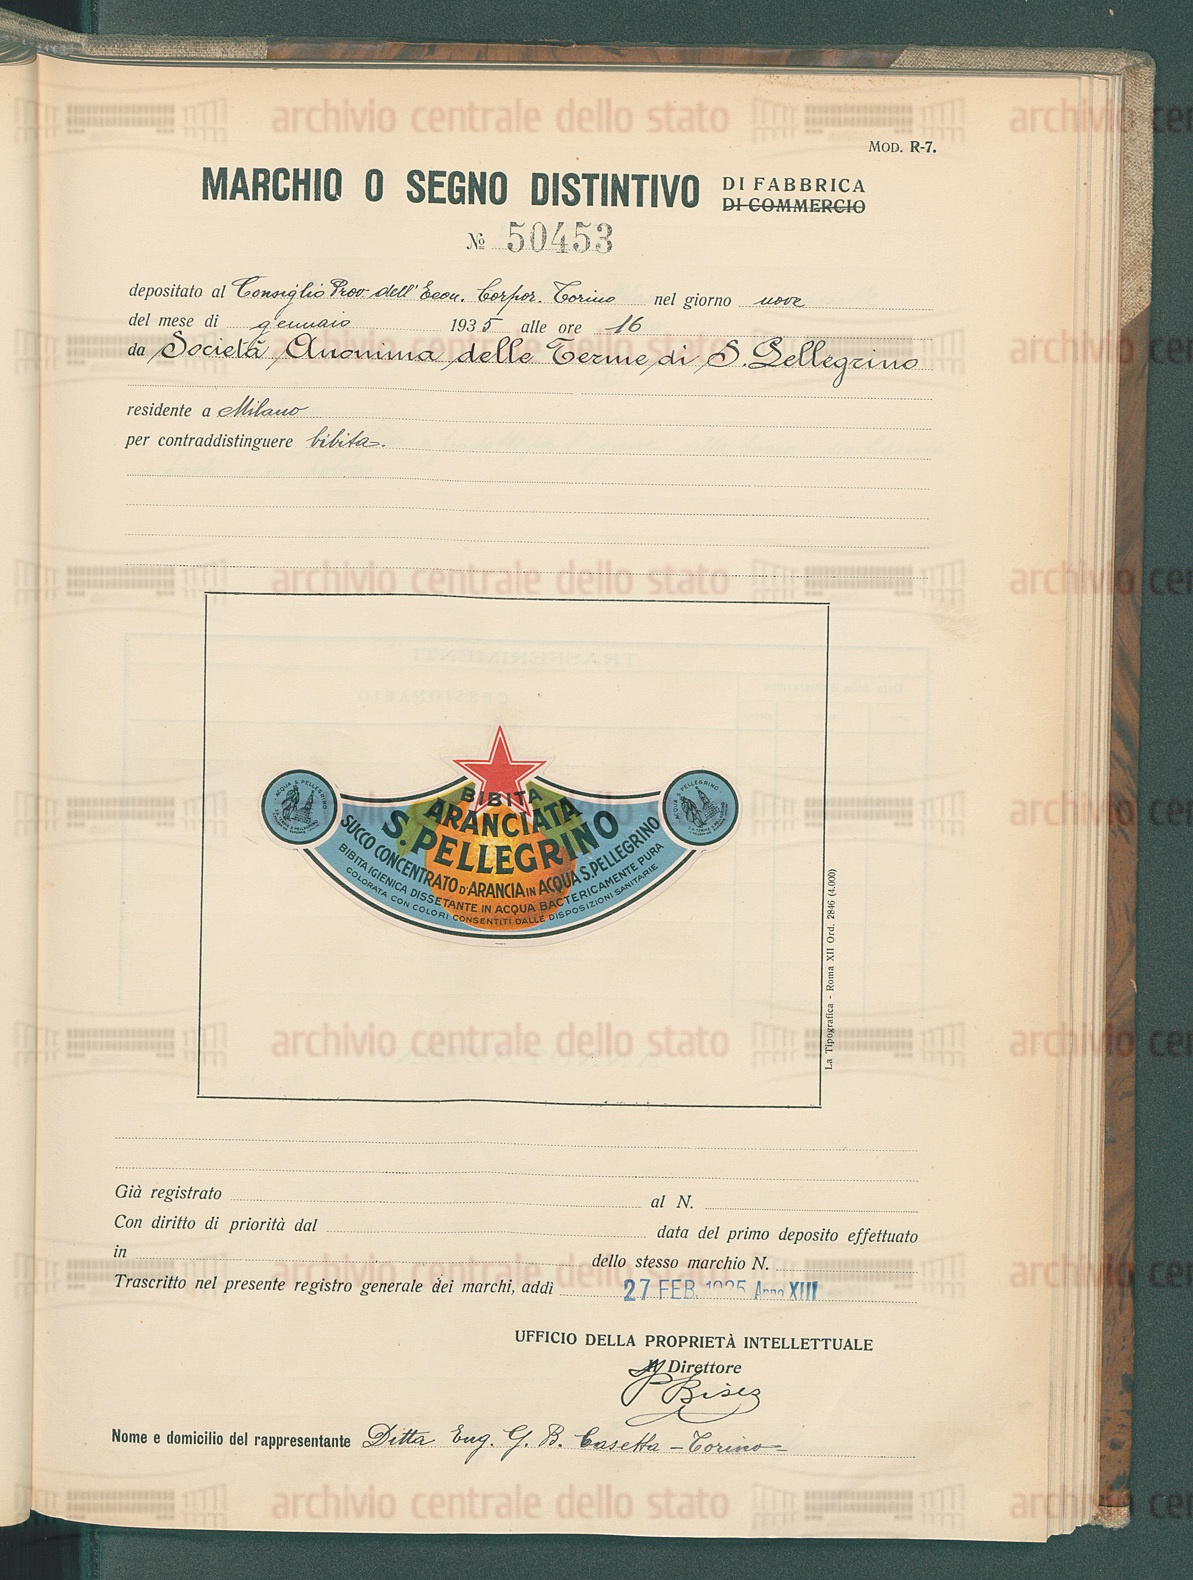 archivio centrale dello stato
MOD. R-7.
MARCHIO O SEGNO DISTINTIVO DI FABBRICA
DI COMMERCIO
№ 50453
depositato al Consiglio Prov. dell'Econ. Corpor. Torino nel giorno nove
del mese di gennaio 1935 alle ore 16
da Società Anonima delle Terme di S. Pellegrino
residente a Milano
per contraddistinguere bibita.
archivio centrale dello stato
TRASFERIMENTI
CESSIONARIO
ACQUA S. PELLEGRINO
ACQUA S. PELLEGRINO
BIBITA
ARANCIATA
S. PELLEGRINO
SUCCO CONCENTRATO D'ARANCIA IN ACQUA S. PELLEGRINO
BIBITA IGIENICA DISSETANTE IN ACQUA BACTERICAMENTE PURA
COLORATA CON COLORI CONSENTITI DALLE DISPOSIZIONI SANITARIE
La Tipografica - Roma XII Ord. 2846 (4.000)
archivio centrale dello stato
Già registrato al N.
Con diritto di priorità dal data del primo deposito effettuato
in dello stesso marchio N.
Trascritto nel presente registro generale dei marchi, addì 27 FEB. 1935 Anno XIII
UFFICIO DELLA PROPRIETÀ INTELLETTUALE
Il Direttore
Nome e domicilio del rappresentante Ditta Eug. G. B. Casetta - Torino
archivio centrale dello stato